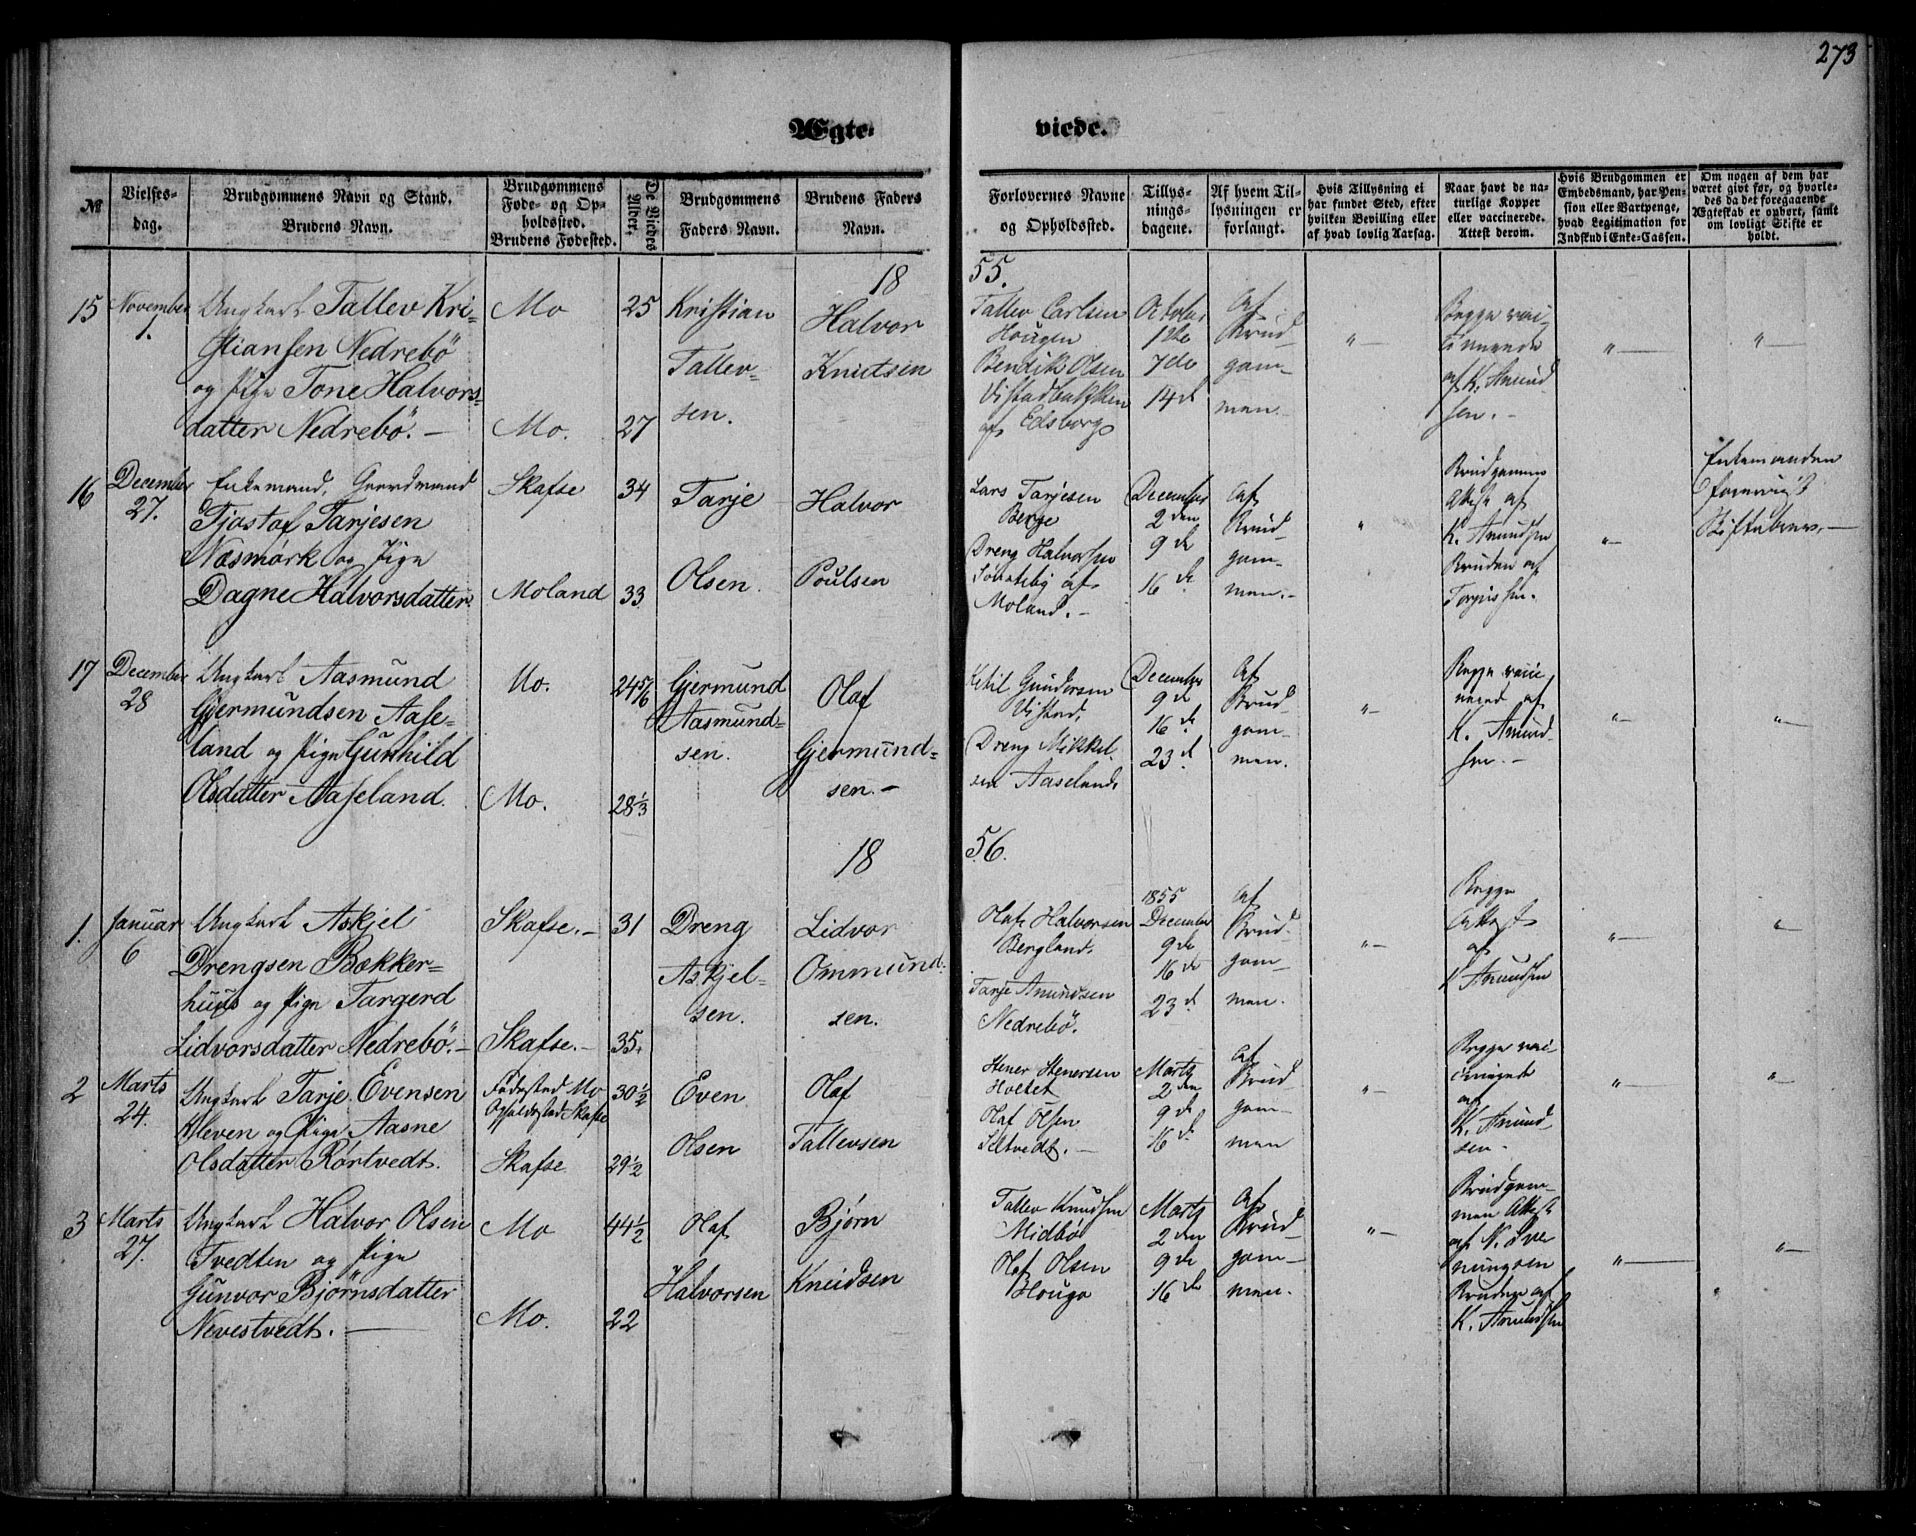 273
Ægte-
viede.
№
Vielses-
dag.
Brudgommens Navn og Stand.
Brudens Navn.
Brudgommens
Føde- og Op-
holdssted.
Brudens Fødested.
De Viedes
Alder.
Brudgommens
Faders Navn.
Brudens Faders
Navn.
Forlovernes Navne
og Opholdssted.
Tillys-
nings-
dagene.
Af hvem Til-
lysningen er
forlangt.
Hvis Tillysning ei
har fundet Sted, efter
hvilken Bevilling eller
af hvad lovlig Aarsag.
Naar havt de na-
turlige Kopper
eller vaccinerede.
Attest derom.
Hvis Brudgommen er
Embedsmand, har Pen-
sion eller Vartpenge,
hvad Legitimation for
Indskud i Enke-Cassen.
Om nogen af dem har
været givt før, og hvorle-
des da det foregaaende
Ægteskab er ophørt, samt
om lovligt Skifte er
holdt.
18
55.
15
November
1.
Ungkarl Tallev Kri-
stiansen Nedrebö
og Pige Tone Halvors-
datter Nedrebö. —
Mo
Mo.
25
27
Kristian
Tallev-
sen.
Halvor
Knutsen
Tallev Carlsen
Hougen
Bendik Olsen
af Edsborg
October
7de
14d
Af
Brud-
gom-
men.
"—
Begge vac-
cinerede
af K. Amund
sen. -
"—
"—
16
December
27.
Enkemand, Gaardmand
Tjostof Tarjesen
Næsmork og Pige
Dagne Halvorsdatter.
Skafse
Moland
34
33
Tarje
Olsen.
Halvor
Poulsen
Lars Tarjesen
Berge
Dreng Halvorsen
af
Moland. -
December
2den
9de
16de
Af
Brud-
gom-
men.-
"
Brudgommens
Attest af
K. Amundsen
Bruden af
"—
Enkemanden
17
December
28
Ungkarl Aasmund
Gjermundsen Aase-
land og Pige Gunhild
Olsdatter Aaseland.
Mo.
Mo.
24 5/6
28 1/3
Gjermund
Aasmund-
sen.
Olaf
Gjermund-
sen. -
Ketil Gundersen
Vistad,
Dreng Mikkel-
sen Aaseland,
December
9de
16de
23d.
Af
Brud-
gom-
men.
"—
Begge vacci-
nered af
K. Amund-
sen. -
"—
"—
18
56.
1.
Januar
6
Ungkarl Askjel
Drengsen Bækker-
huus og Pige Targerd
Lidvorsdatter Nedrebö. -
Skafse. -
Skafse. -
31
35.
Dreng
Askjel-
sen.
Lidvor
Ommund-
sen.
Olaf Halvorsen
Bergland.
Tarje Amundsen
Nedrebö.
1855
December
9de
16de
23d.
Af
Brud-
gom-
men.
"—
Begge
Attest
af
K Amundsen
"—
"—
2
Marts
24.
Ungkarl Tarje Evensen
Kleven og Pige Aasne
Olsdatter Rørtvedt.
Fødested Mo
Opholdssted Skafse
Skafse
30 1/2
29 1/2
Even
Olsen
Olaf
Tallevsen
Stener Stenersen
Holtet
Olaf Olsen
Marts
2den
9de
16de
Af
Brud-
gom-
men
"—
Begge vac-
cineret
af
K. Amund
sen-
"—
"—
3
Marts
27.
Ungkarl Halvor Olsen
Tvedten og Pige
Gunvor Bjørnsdatter
Nevestvedt. —
Mo
Mo.
44 1/2
22
Olaf
Halvorsen
Bjørn
Knudsen
Tallev Knudsen
Midbø
Olaf Olsen
Houga
Marts
2den
9de
16de
Af
Brud-
gom-
men.
"—
Brudgom-
men Attest
Bruden af
K. Amundsen
"—
"—